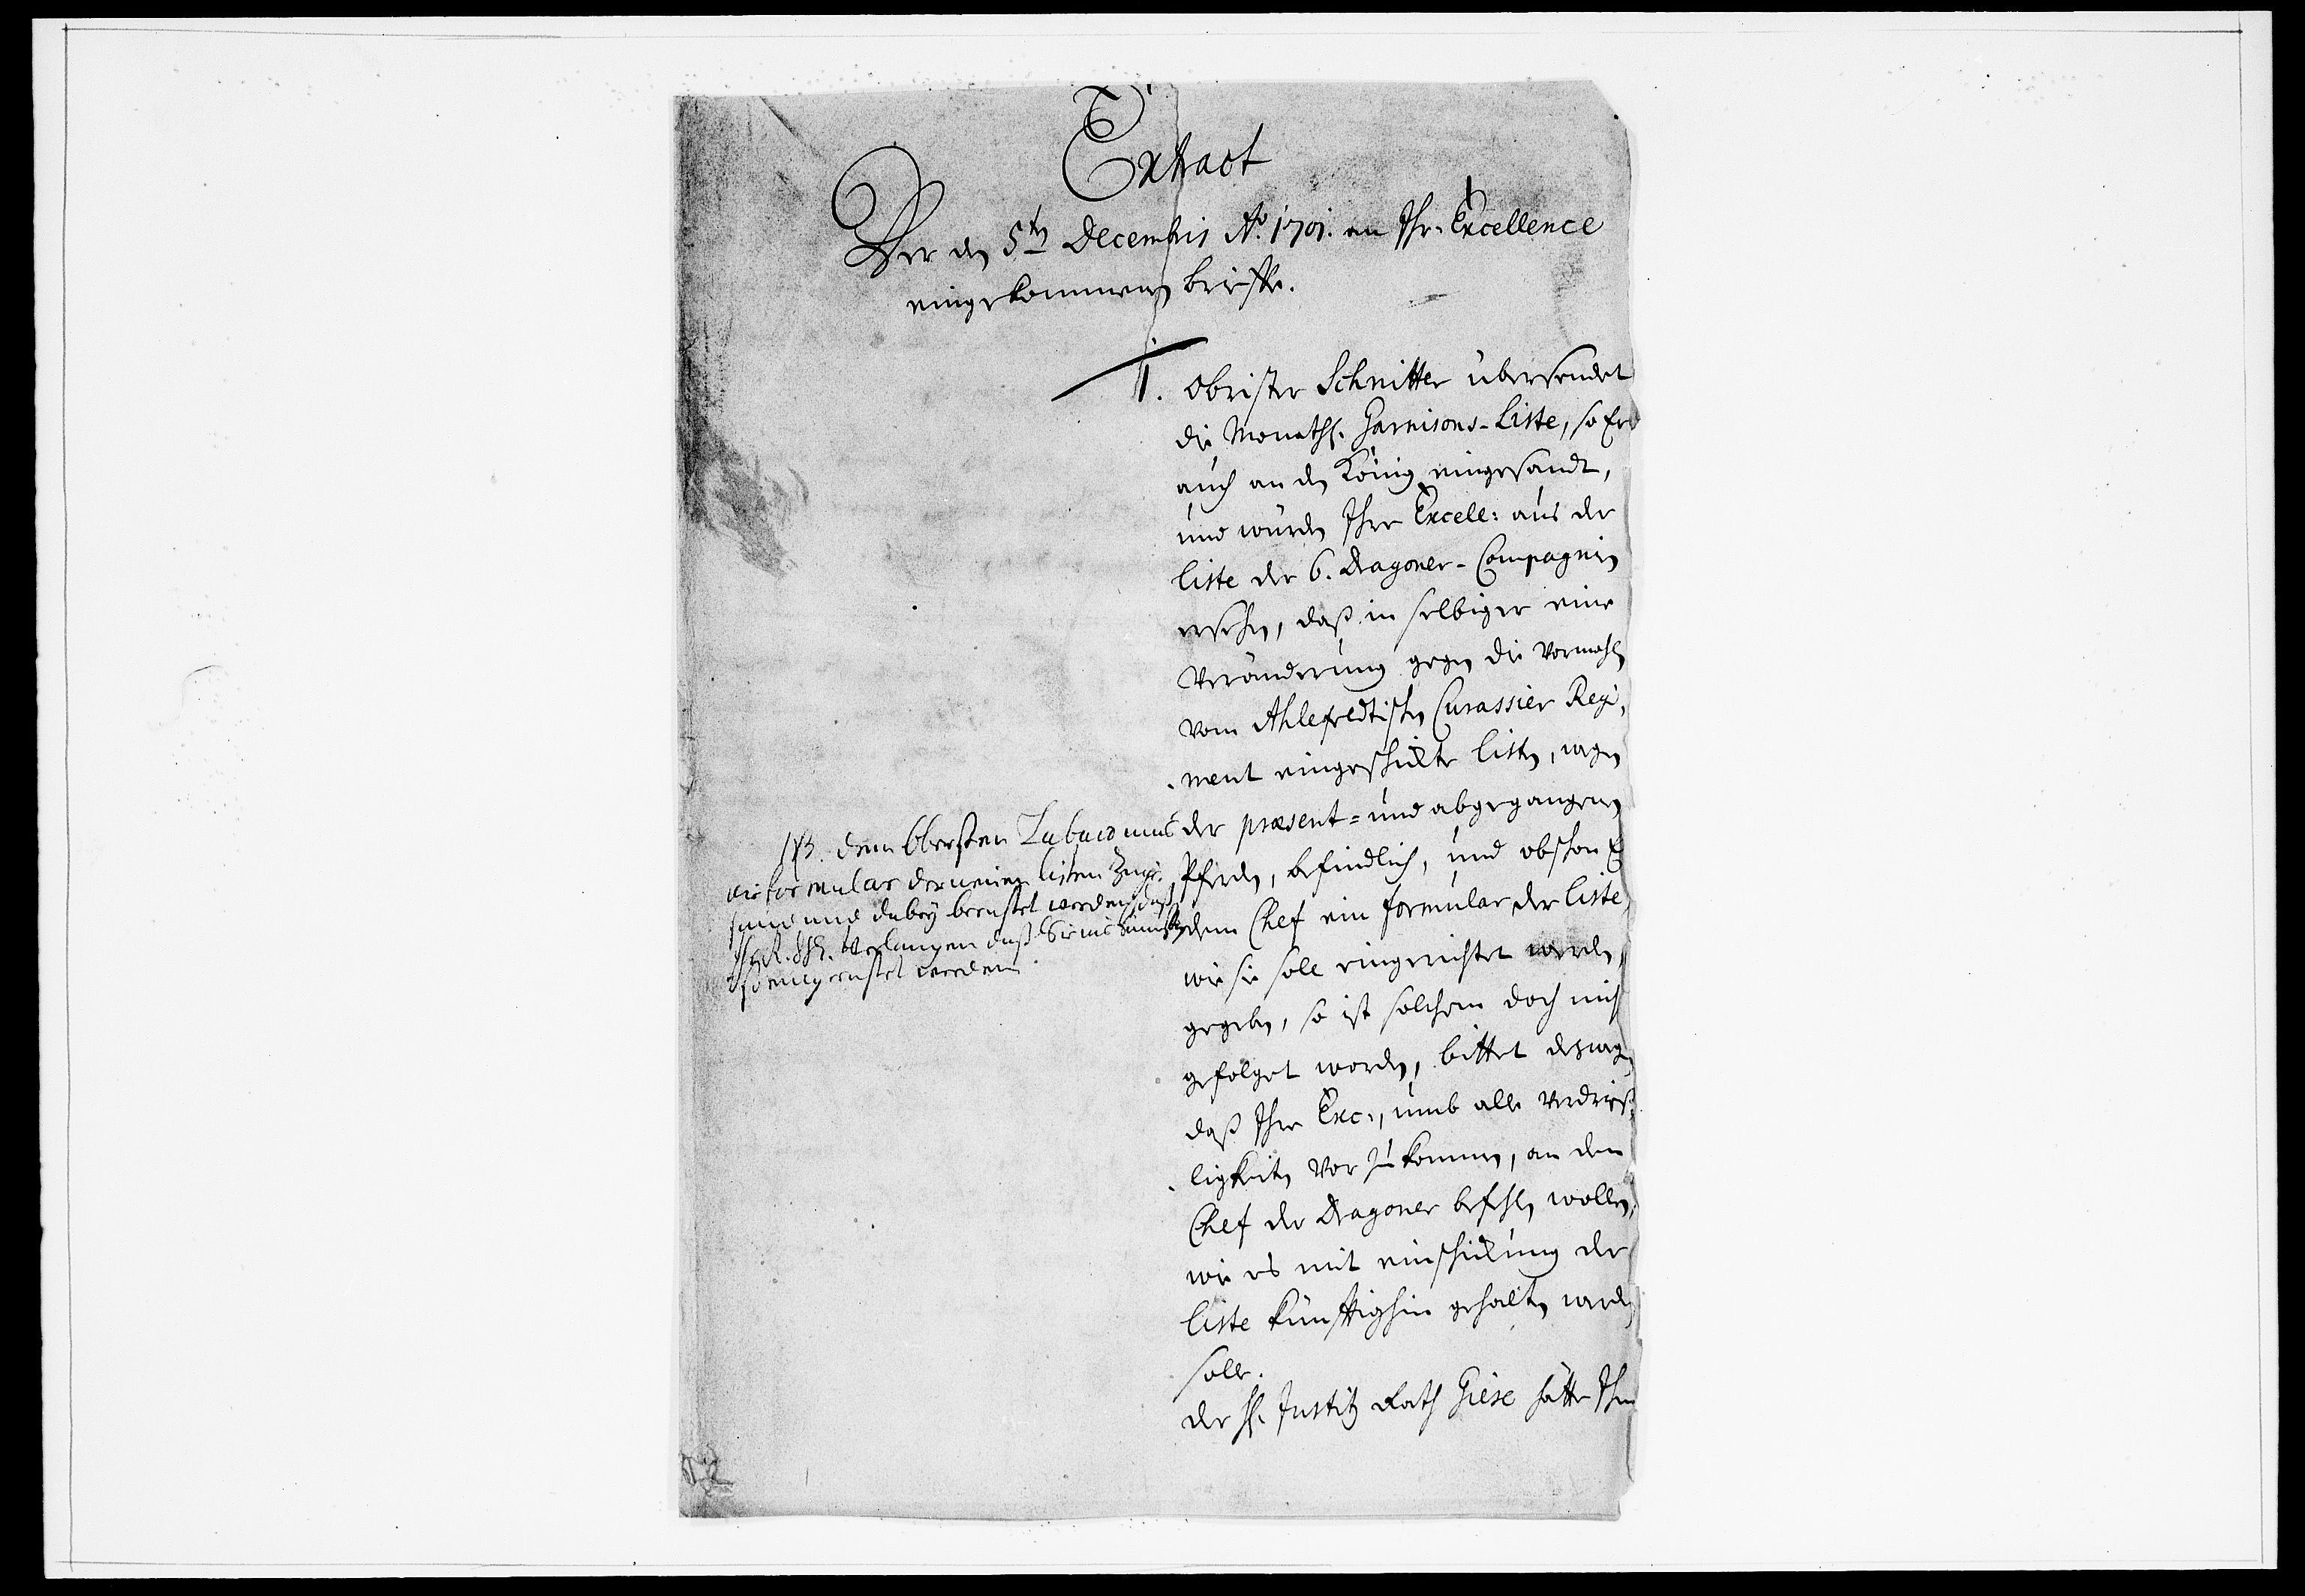 Extract
Der den 5ten Decembris Ao. 1701. an Ihr. Excellence
eingekommen brieffe.
1. Obrister Schnitter übersendet
die Monathl. Garnisons-Liste, so Er
auch an den König eingesandt,
und würden Ihre Excell: aus der
liste der 6. Dragoner-Compagnien
ersehen, daß in selbiger eine
Veränderung gegen die vormahls
vom Ahlefeldtischen Curassier Regi,
ment eingeschickte listen, wegen
der præsent= und abgegangenen
Pferden, befindlich, und obschon E
dem Chef ein formular der liste,
wie sie soll eingerichtet werden,
gegeben, so ist solchem doch nich
gefolget worden, bittet deswegen
daß Ihre Exc:, umb alle verdrieß
ligkeiten vorzukommen, an dem
Chef der Dragoner befehlen wollen,
wie es mit einschickung der
liste künfftighin gehalten werden
solle.
Der H. Justitz Rath Giese hätte Ihm
NB. dem Obersten
die formular der neuen listen
sand und dabey berichtet werden, daß
verlangen daß Sie ins künfftig
so eingerichtet werden.